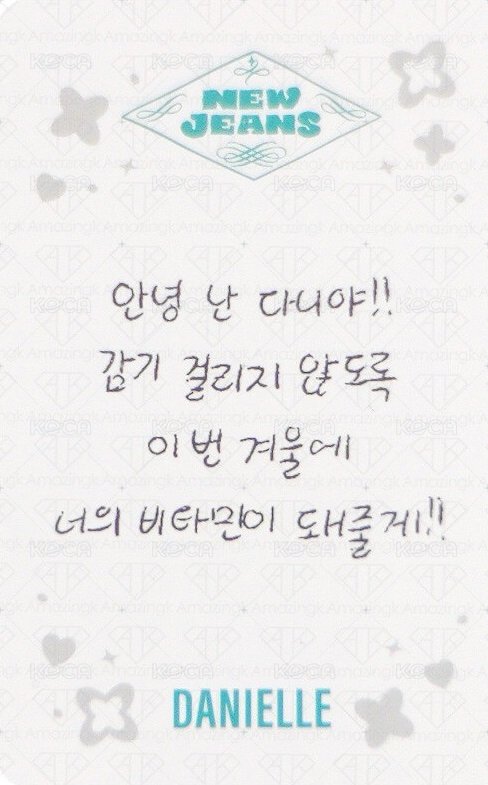 NEW
JEANS
안녕 난 다니야!!
감기 걸리지 않도록
이번 겨울에
너의 비타민이 돼줄게!!
DANIELLE